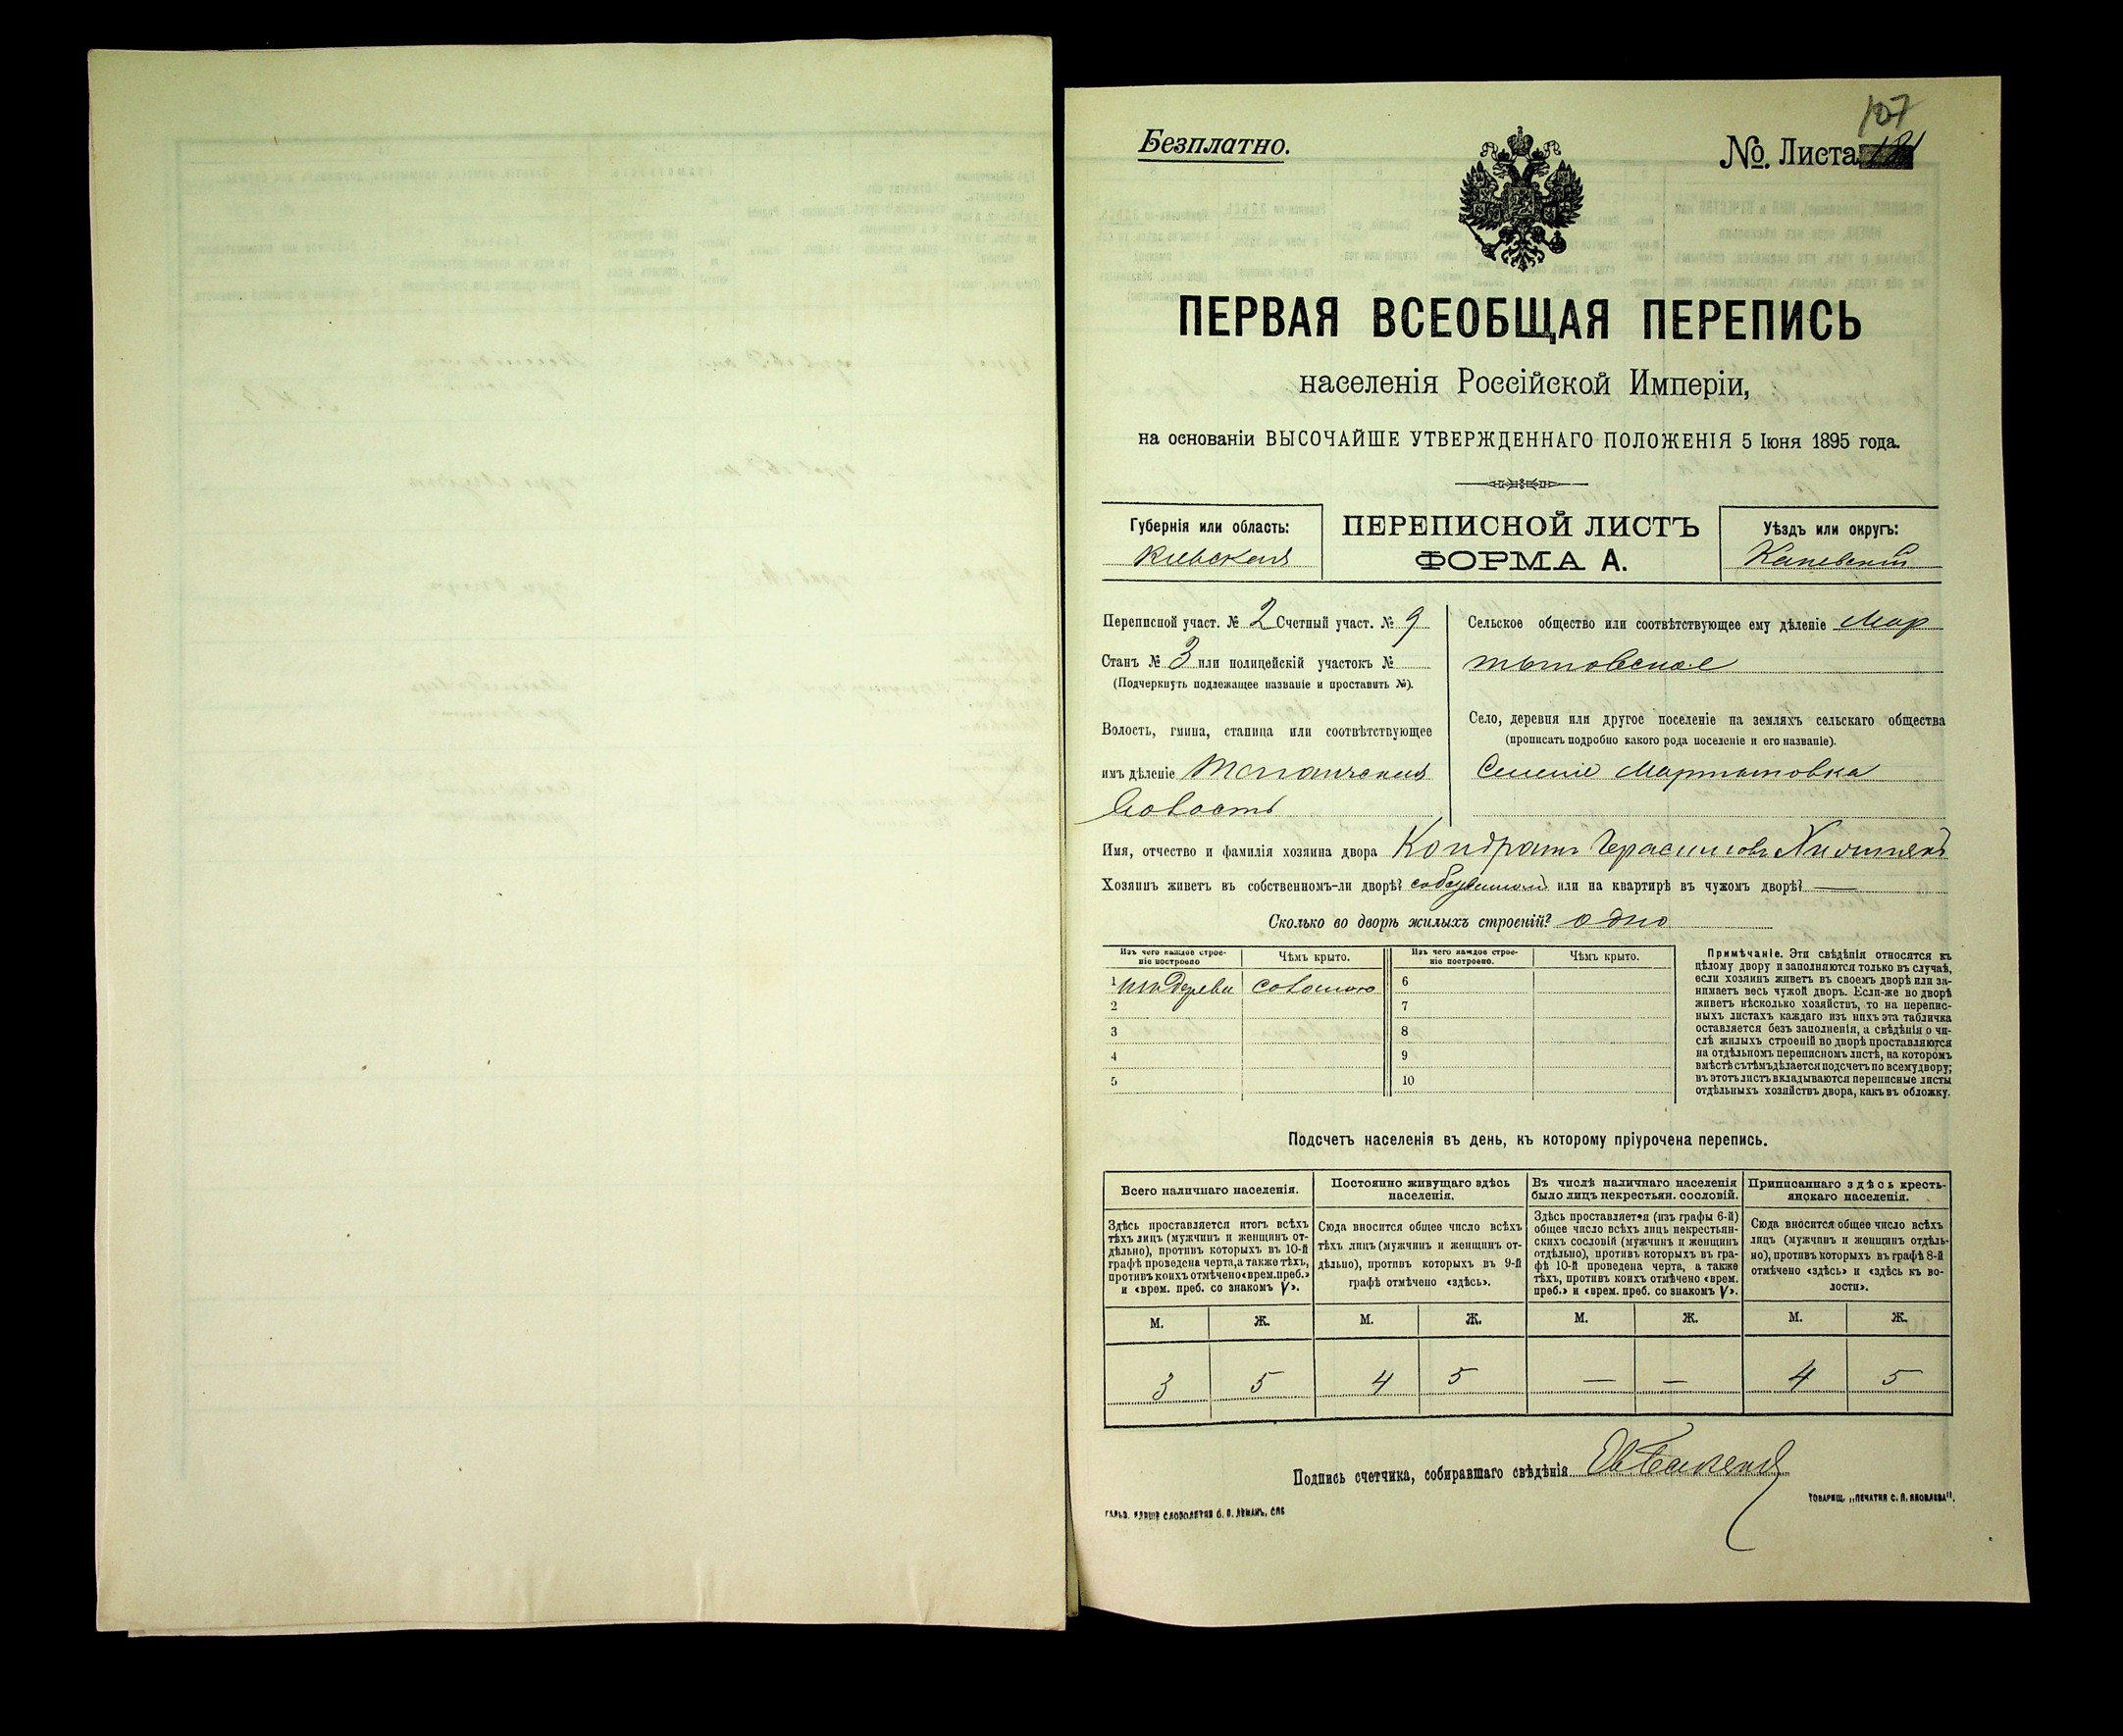 107
Безплатно.
№. Листа
ПЕРВАЯ ВСЕОБЩАЯ ПЕРЕПИСЬ
населенія Россійской Имперіи,
на основаніи ВЫСОЧАЙШЕ УТВЕРЖДЕННАГО ПОЛОЖЕНІЯ 5 Іюня 1895 года.
Губернія или область:
Кіевская
ПЕРЕПИСНОЙ ЛИСТЪ
ФОРМА А.
Уѣздъ или округъ:
Каневскій
Переписной участ. № 2 Счетный участ. № 9
Станъ № 3 или полицейскій участокъ №
(Подчеркнуть подлежащее названіе и проставить №).
Волость, гмина, станица или соотвѣтствующее
имъ дѣленіе
Волость
Сельское общество или соотвѣтствующее ему дѣленіе Мар
тыновское
Село, деревня или другое поселеніе на земляхъ сельскаго общества
(прописать подробно какого рода поселеніе и его названіе).
Селеніе Мартыновка
Имя, отчество и фамилія хозяина двора Кондратъ Герасимовъ
Хозяинъ живетъ въ собственномъ-ли дворѣ? или на квартирѣ въ чужомъ дворѣ? —
Сколько во дворѣ жилыхъ строеній? одно
Изъ чего каждое строе-
ніе построено
Чѣмъ крыто.
Изъ чего каждое строе-
ніе построено.
Чѣмъ крыто.
1 изъ дерева соломою 6
2 7
3 8
4 9
5 10
Примѣчаніе. Эти свѣдѣнія относятся къ
цѣлому двору и заполняются только въ случаѣ,
если хозяинъ живетъ въ своемъ дворѣ или за-
нимаетъ весь чужой дворъ. Если-же во дворѣ
живетъ нѣсколько хозяйствъ, то на перепис-
ныхъ листахъ каждаго изъ нихъ эта табличка
оставляется безъ заполненія, а свѣдѣнія о чи-
слѣ жилыхъ строеній во дворѣ проставляются
на отдѣльномъ переписномъ листѣ, на которомъ
вмѣстѣ съ тѣмъ дѣлается подсчетъ по всему двору;
въ этотъ листъ вкладываются переписные листы
отдѣльныхъ хозяйствъ двора, какъ въ обложку.
Подсчетъ населенія въ день, къ которому пріурочена перепись.
Всего наличнаго населенія.
Здѣсь проставляется итогъ всѣхъ
тѣхъ лицъ (мужчинъ и женщинъ от-
дѣльно), противъ которыхъ въ 10-й
графѣ проведена черта, а также тѣхъ,
противъ коихъ отмѣчено «врем. преб.»
и «врем. преб. со знакомъ V».
Постоянно живущаго здѣсь
населенія.
Сюда вносится общее число всѣхъ
тѣхъ лицъ (мужчинъ и женщинъ от-
дѣльно), противъ которыхъ въ 9-й
графѣ отмѣчено «здѣсь».
Въ числѣ наличнаго населенія
было лицъ некрестьян. сословій.
Здѣсь проставляется (изъ графы 6-й)
общее число всѣхъ лицъ некрестьян-
скихъ сословій (мужчинъ и женщинъ
отдѣльно), противъ которыхъ въ гра-
фѣ 10-й проведена черта, а также
тѣхъ, противъ коихъ отмѣчено «врем.
преб.» и «врем. преб. со знакомъ V».
Приписаннаго здѣсь кресть-
янскаго населенія.
Сюда вносится общее число всѣхъ
лицъ (мужчинъ и женщинъ отдѣль-
но), противъ которыхъ въ графѣ 8-й
отмѣчено «здѣсь» и «здѣсь къ во-
лости».
М. Ж. М. Ж. М. Ж. М. Ж.
3 5 4 5 — — 4 5
Подпись счетчика, собиравшаго свѣдѣнія
ТОВАРИЩ. „ПЕЧАТНЯ С. П. ЯКОВЛЕВА".